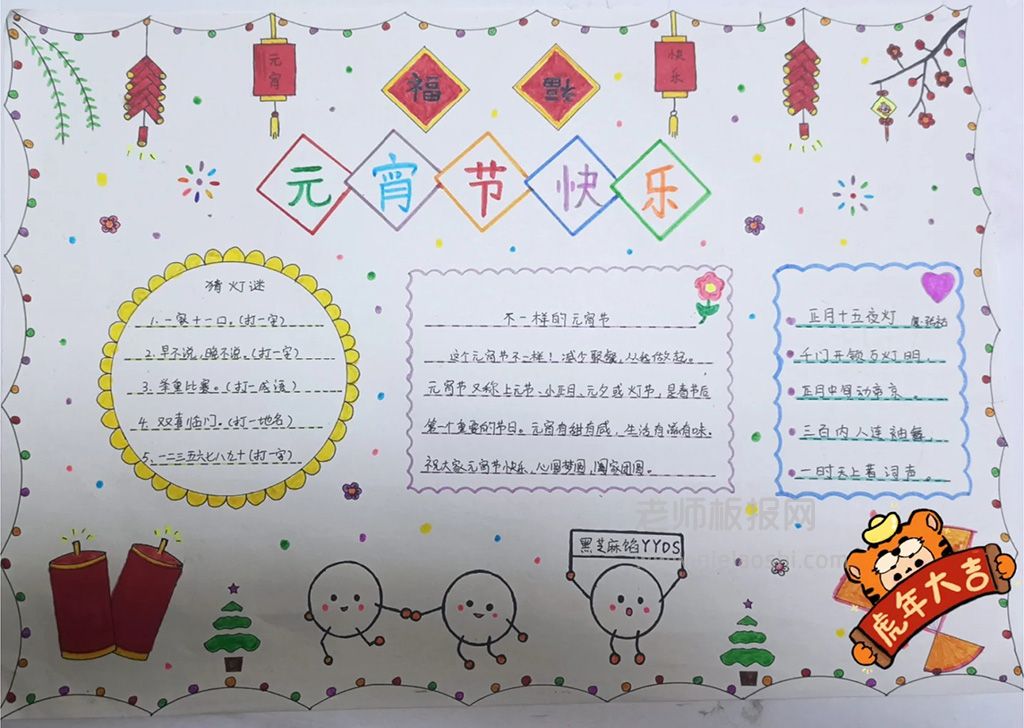 元宵
快乐
福
福
元宵节快乐
猜灯谜
1. 一家十一口。(打一字)
2. 早不说,晚不说。(打一字)
3. 举重比赛。(打一成语)
4. 双喜临门。(打一地名)
5. 一二三五六七八九十(打一字)
不一样的元宵节
这个元宵节不一样!减少聚餐,从我做起。
元宵节又称上元节、小正月、元夕或灯节,是春节后
第一个重要的节日。元宵有甜有咸,生活有滋有味。
祝大家元宵节快乐,心圆梦圆,阖家团圆。
正月十五夜灯 唐·张祜
千门开锁万灯明,
正月中旬动帝京。
三百内人连袖舞,
一时天上著词声。
老师板报网
黑芝麻馅YYDS
虎年大吉